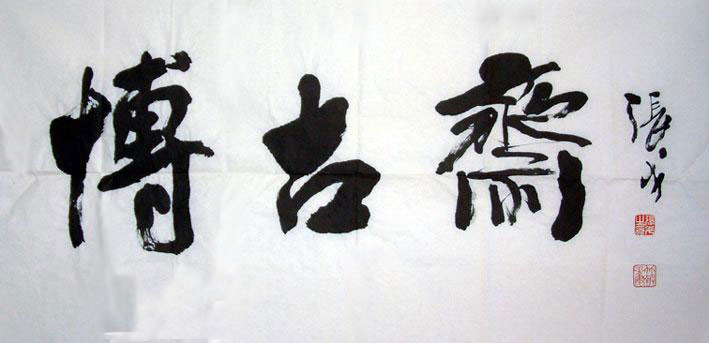 博古齋
張